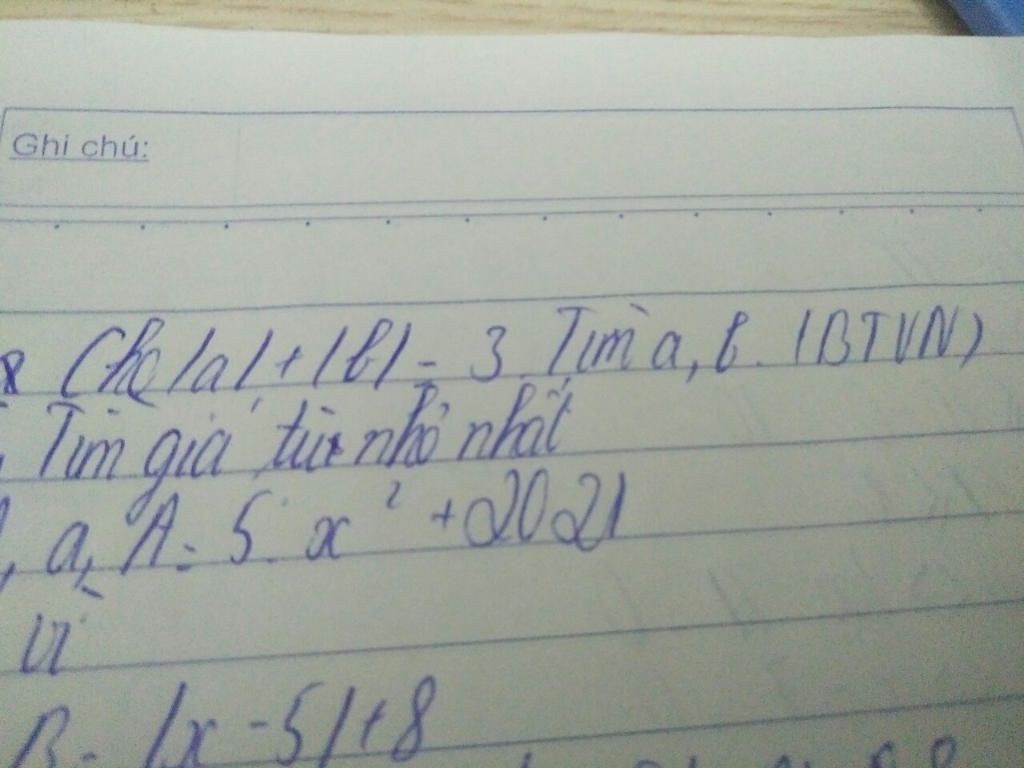 Ghi chú:
Cho |a| + |b| = 3. Tìm a, b. (BTVN)
Tìm giá trị nhỏ nhất
a, A = 5. x² + 2021
Vì
B = |x - 5| + 8